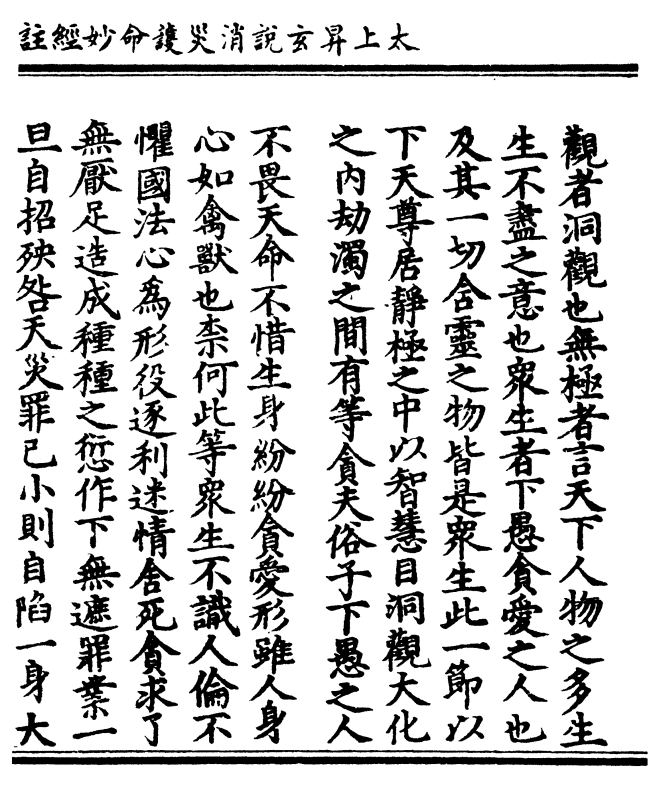 太上昇玄說消災護命妙經註
觀者洞觀也無極者言天下人物之多生
生不盡之意也眾生者下愚貪愛之人也
及其一切含靈之物皆是眾生此一節以
下天尊居靜極之中以智慧目洞觀大化
之內劫濁之間有等貪夫俗子下愚之人
不畏天命不惜生身紛紛貪愛形雖人身
心如禽獸也柰何此等眾生不識人倫不
懼國法心為形役逐利迷情舍死貪求了
無厭足造成種種之愆作下無邊罪業一
旦自招殃咎天災罪己小則自陷一身大